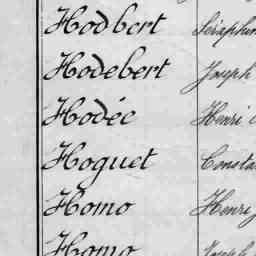 Hodbert Séraphin
Hodebert Joseph
Hodée Henri
Hoguet Consta
Homo Henry
Homo Joseph